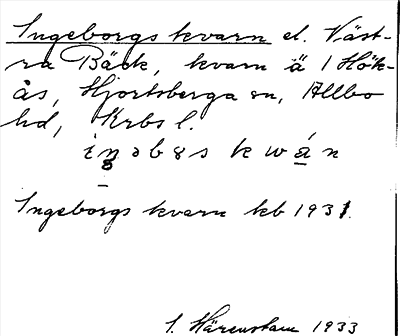 Ingeborgs kvarn el. Väst-
ra Bäck, kvarn ä 1 Hök-
ås, Hjortsberga sn, Allbo
hd, Krbs l.
Ingeborgs kvarn kb 1931.
S. Härenstam 1933